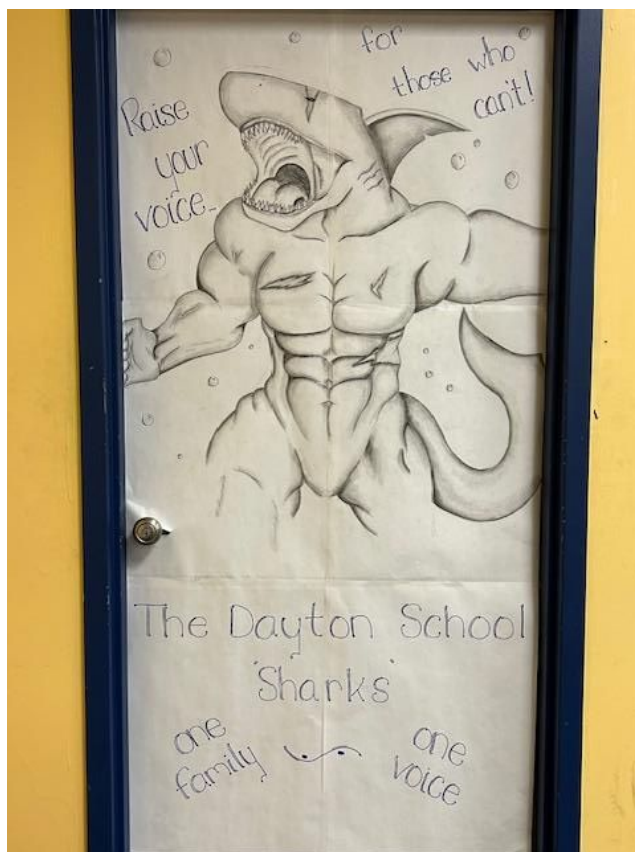 Raise
your
voice..
for
those who
can't!
The Dayton School
"Sharks"
one
family
one
voice